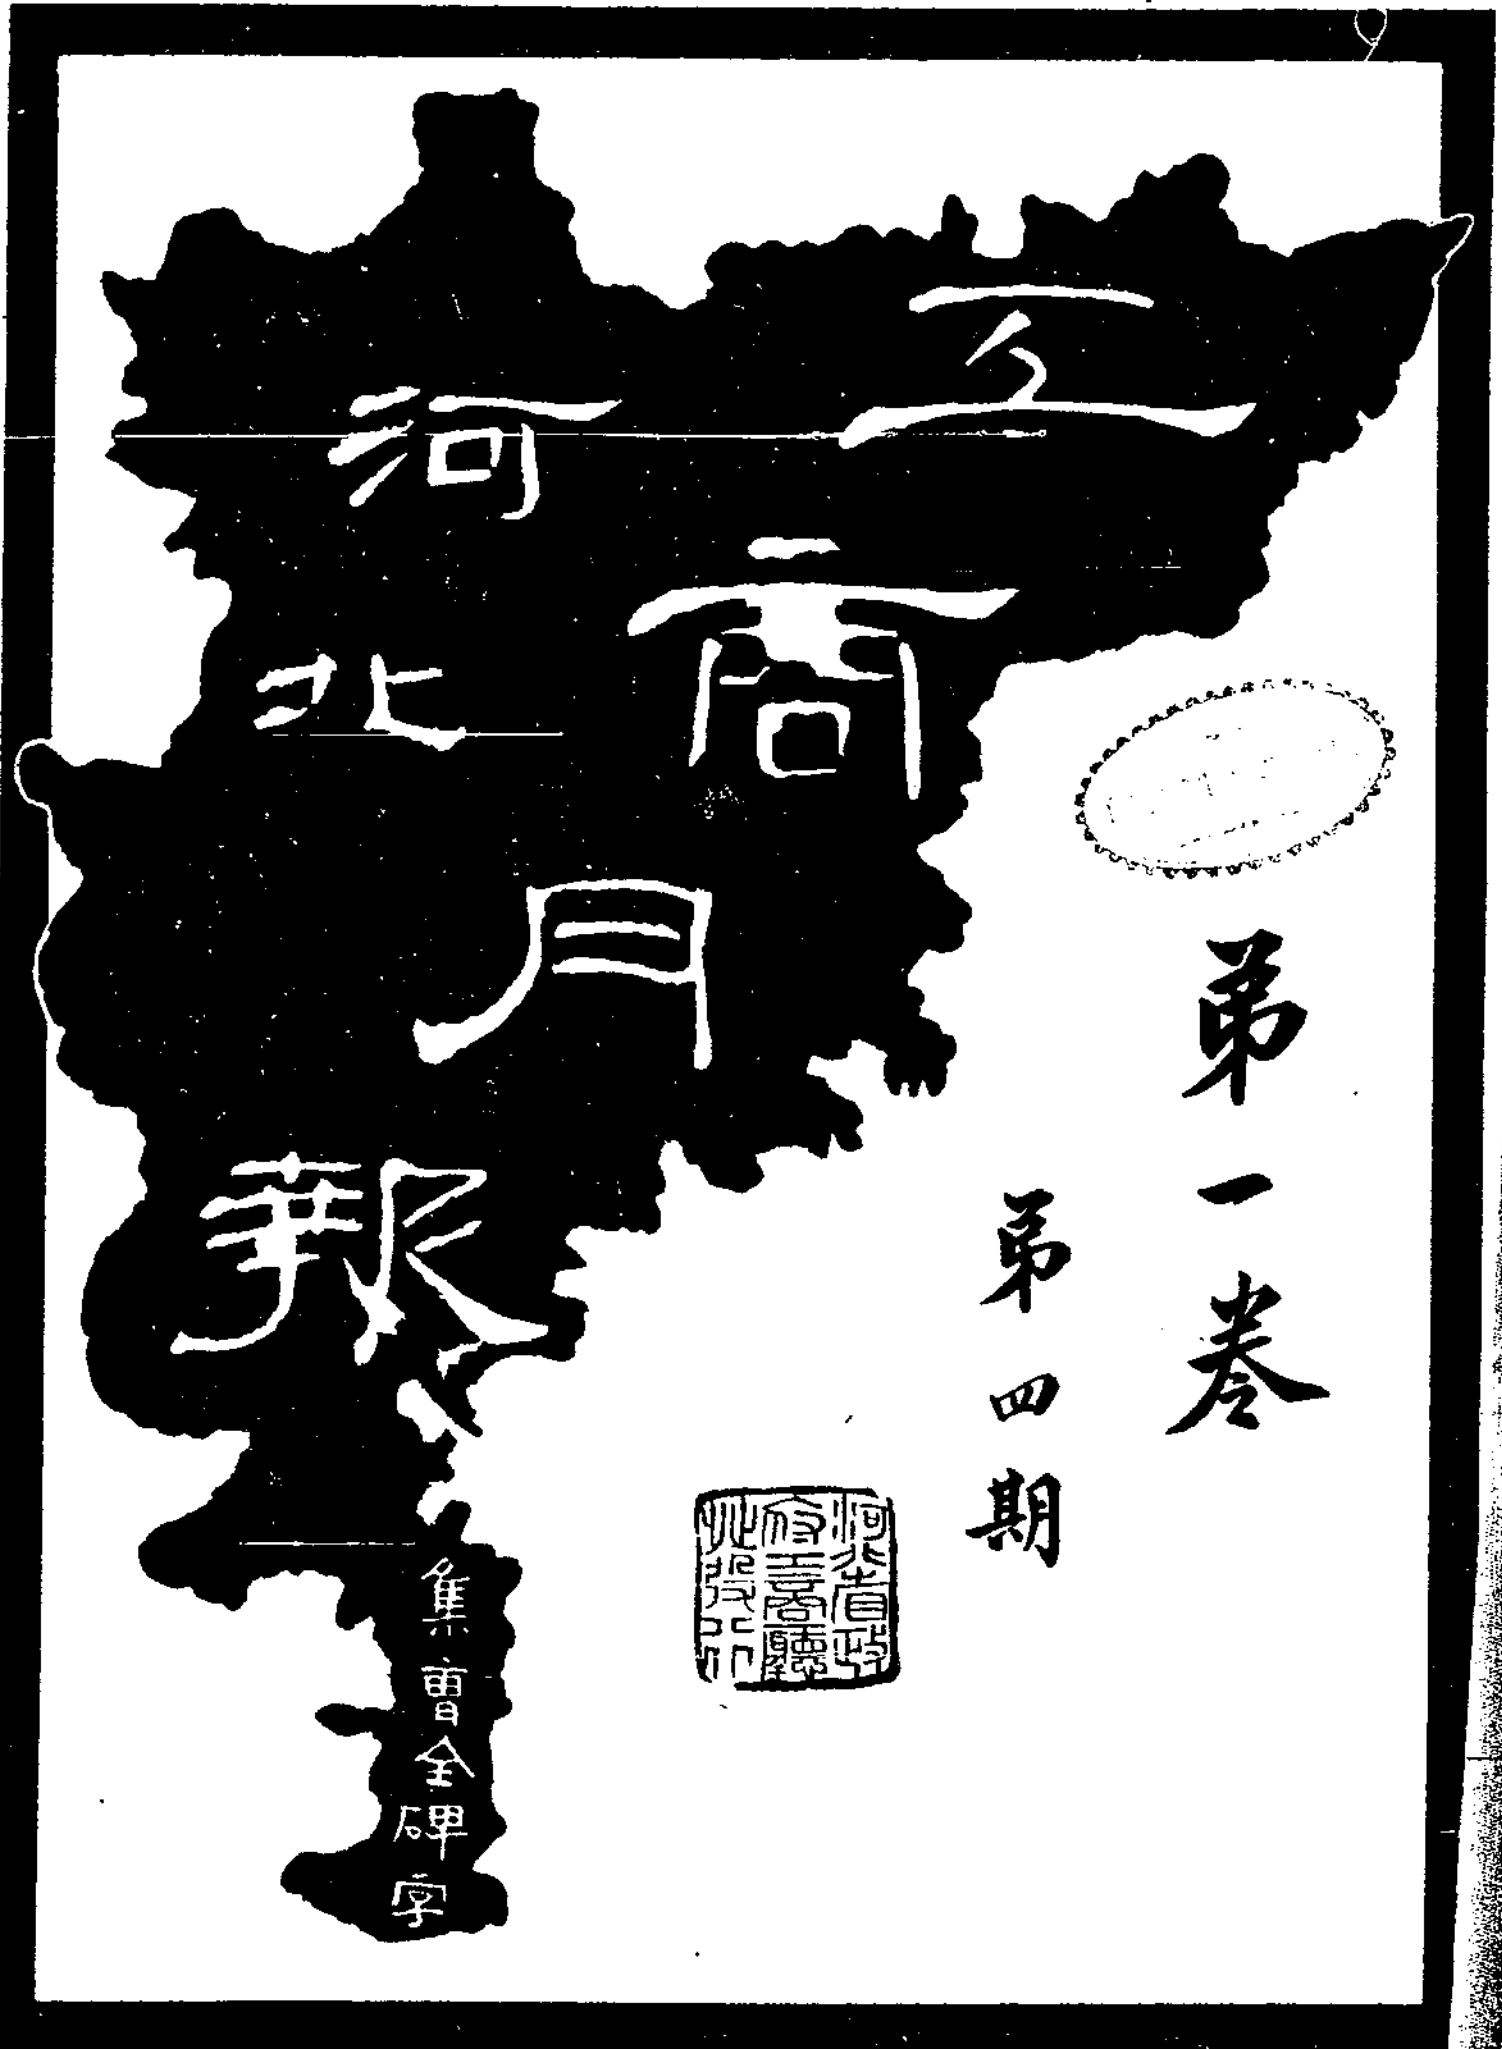 河北
工商月報
第一卷
第四期
河北省政
府工商廳
集曹全碑字